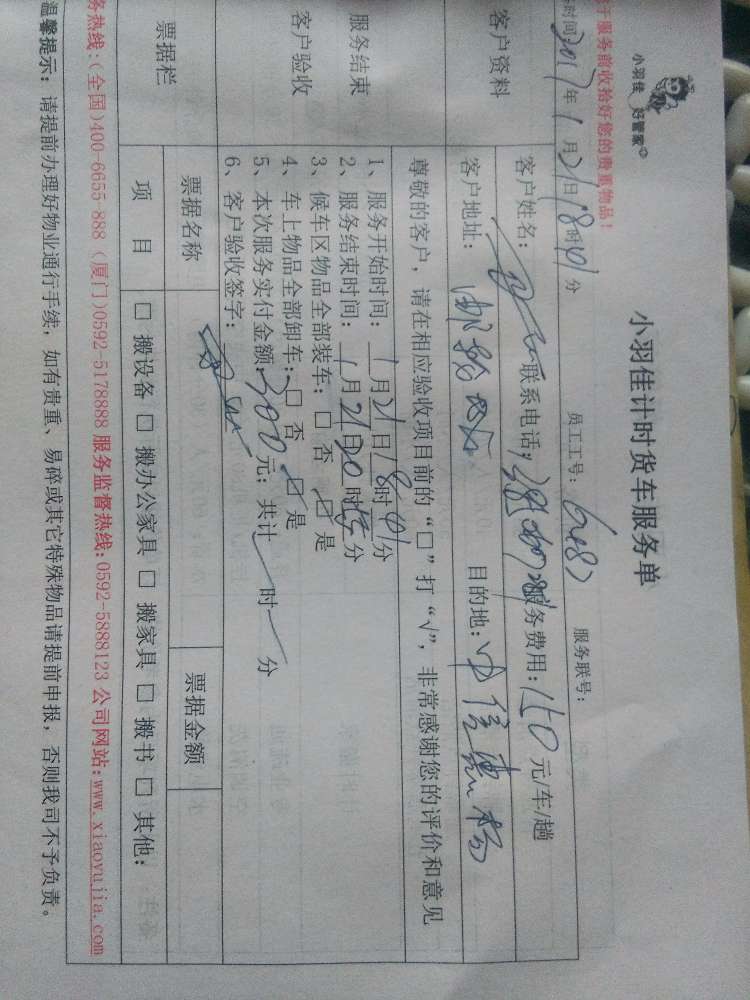 于服务前收拾好您的贵重物品！
小羽佳 好管家
小羽佳计时货车服务单
时间：2017年1月21日18时01分 员工工号： 服务联号：
客户资料
客户姓名： 联系电话： 服务费用：150元/车/趟
客户地址： 目的地：中信惠扬
尊敬的客户，请在相应验收项目前的“□”打“√”，非常感谢您的评价和意见
服务结束
客户验收
1、服务开始时间：1月21日18时01分
2、服务结束时间：1月21日20时15分
3、候车区物品全部装车：□否 □是
4、车上物品全部卸车：□否 □是
5、本次服务实付金额：300元；共计 时 分
6、客户验收签字：
票据栏
票据名称 票据金额
项 目 □搬设备 □搬办公家具 □搬家具 □搬书 □其他：
务热线：(全国)400-6655-888 (厦门)0592-5178888 服务监督热线：0592-5888123 公司网站：www.xiaoyujia.com
温馨提示：请提前办理好物业通行手续，如有贵重、易碎或其它特殊物品请提前申报，否则我司不予负责。